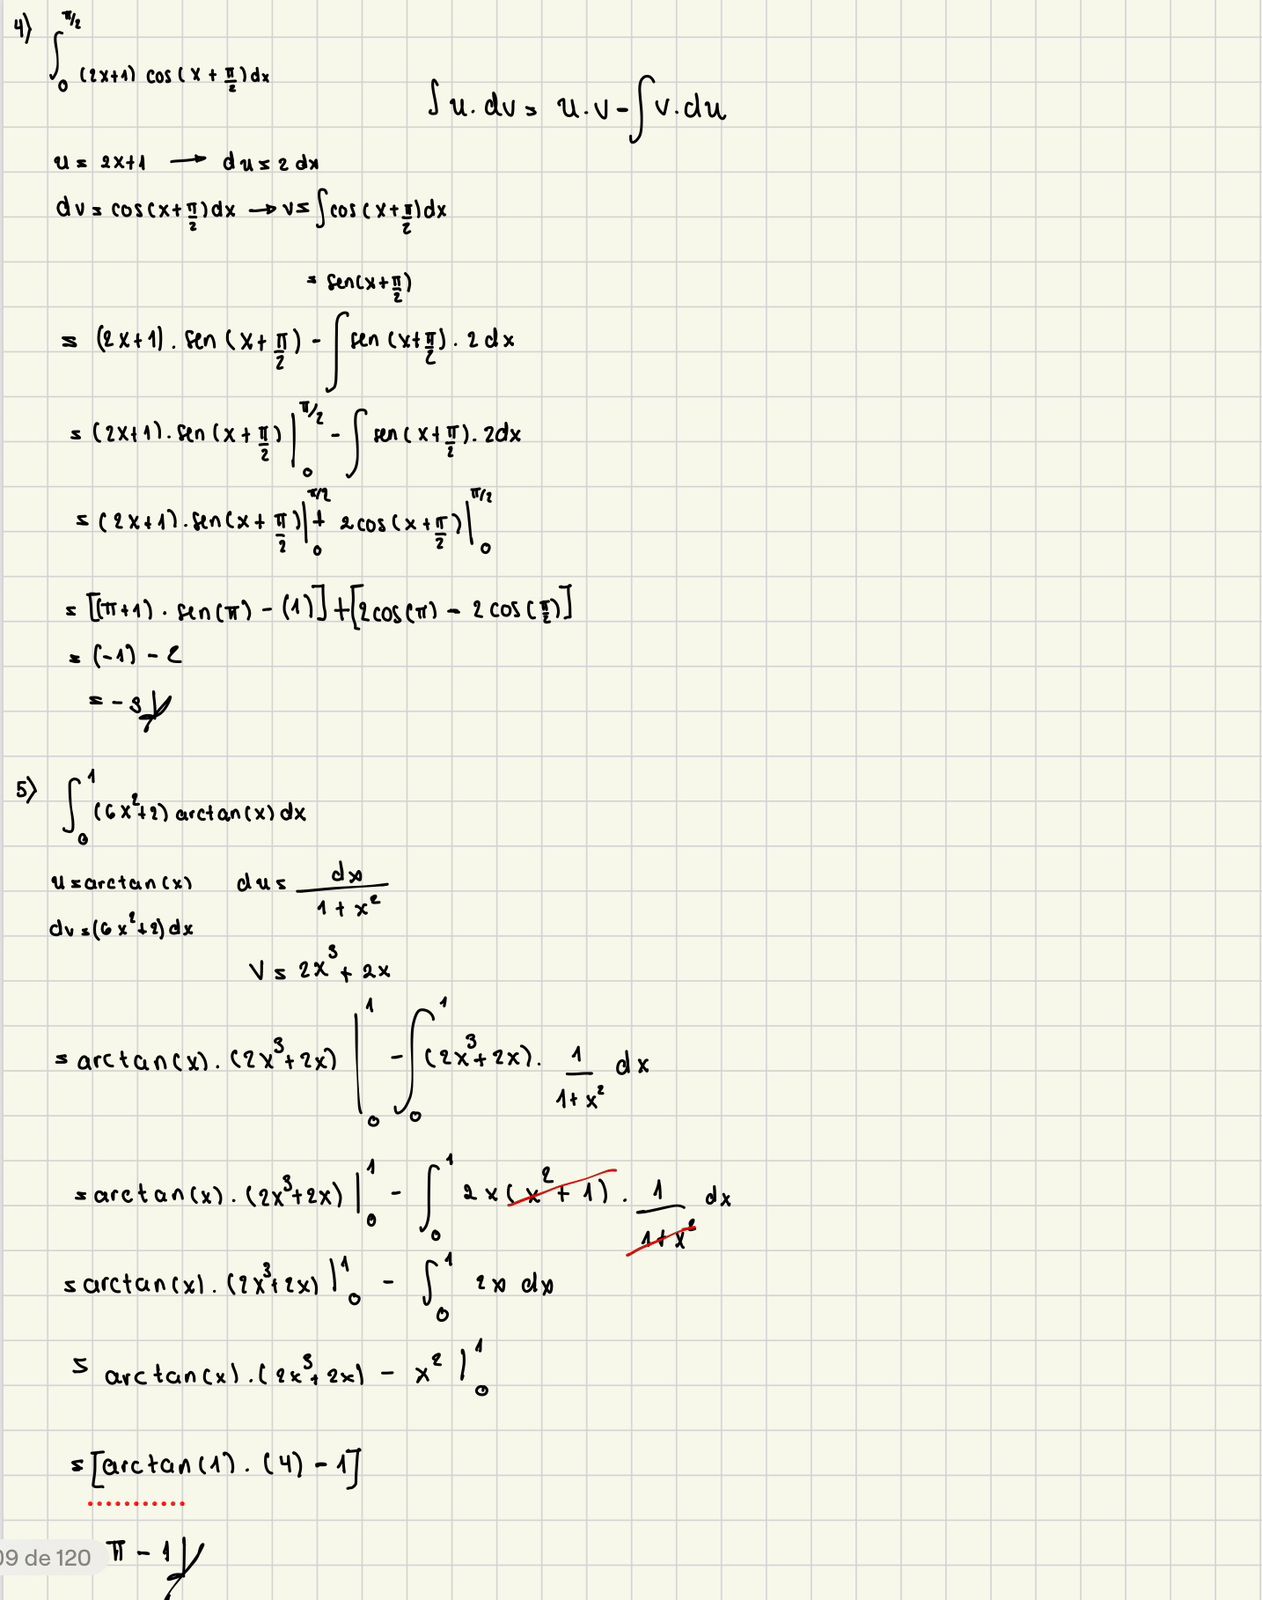 4) ∫₀^(π/2) (2x+1) cos(x + π/2) dx
∫u.dv = u.v - ∫v.du
u = 2x+1 → du = 2 dx
dv = cos(x+π/2) dx → v = ∫cos(x+π/2) dx
= sen(x+π/2)
= (2x+1). sen(x+π/2) - ∫sen(x+π/2). 2 dx
= (2x+1). sen(x+π/2)|₀^(π/2) - ∫sen(x+π/2). 2dx
= (2x+1). sen(x+π/2)|₀^(π/2) + 2cos(x+π/2)|₀^(π/2)
= [(π+1). sen(π) - (1)] + [2cos(π) - 2cos(π/2)]
= (-1) - 2
= -3
5) ∫₀¹ (6x²+2) arctan(x) dx
u = arctan(x) du = dx/(1+x²)
dv = (6x²+2) dx
v = 2x³ + 2x
= arctan(x). (2x³+2x) |₀¹ - ∫₀¹ (2x³+2x). 1/(1+x²) dx
= arctan(x). (2x³+2x) |₀¹ - ∫₀¹ 2x(x²+1). 1/(1+x²) dx
= arctan(x). (2x³+2x) |₀¹ - ∫₀¹ 2x dx
= arctan(x). (2x³+2x) - x² |₀¹
= [arctan(1). (4) - 1]
π - 1
09 de 120